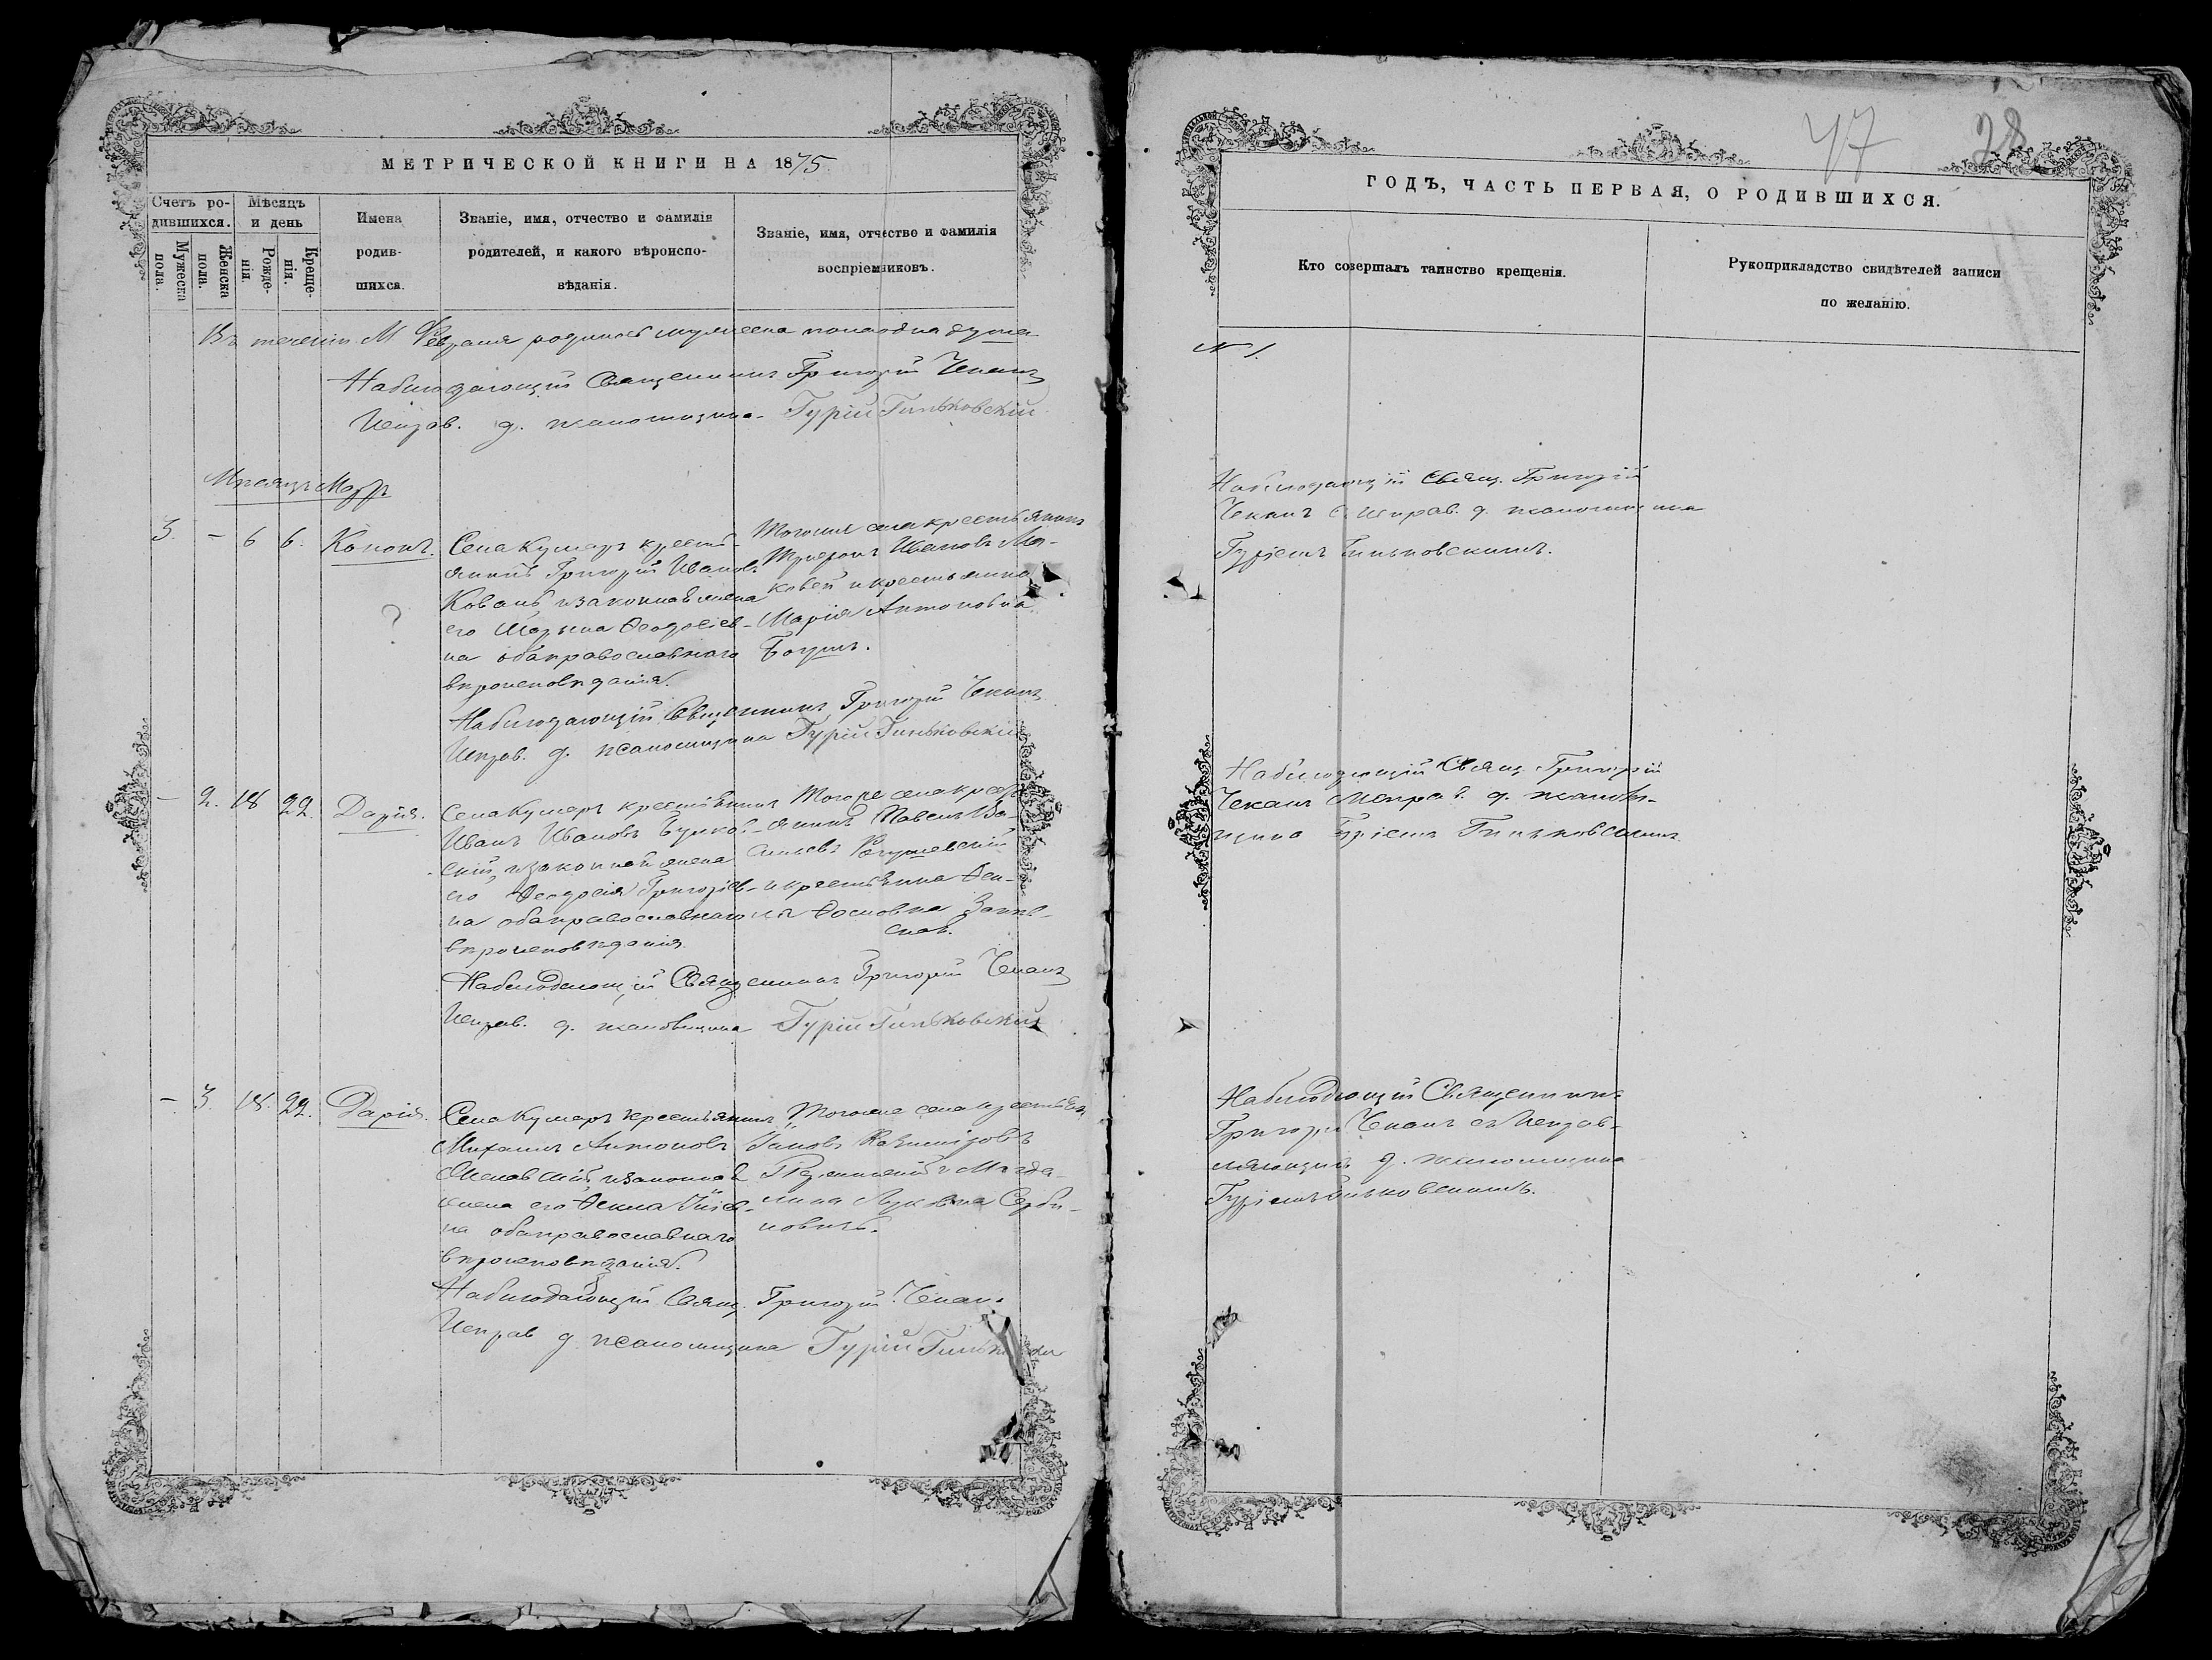 МЕТРИЧЕСКОЙ КНИГИ НА 1875.
Счетъ ро-
дившихся.
Мѣсяцъ
и день
Мужеска
пола.
Женска
пола.
Рожде-
нія.
Креще-
нія.
Имена
родив-
шихся.
Званіе, имя, отчество и фамилія
родителей, и какого вѣроиспо-
вѣданія.
Званіе, имя, отчество и фамилія
воспріемниковъ.
Въ теченіи М Февраля родилось мужеска пола одна душа
Наблюдающій Священникъ Григорій Чеканъ
Исправ. д. псаломщика Гурій Гиньковскій
Мѣсяцъ Мартъ
3. – 6 6. Кононъ.
Села Кушмаръ кресть-
янинъ Григорій Ивановъ
Кованъ, и законная жена
его Марына Феодосіев-
на оба православнаго
вѣроисповѣданія.
Тогоже села крестьянинъ
Ивановъ Ма-
ковей и крестьянка
Марія Антоновна
Наблюдающій Священникъ Григорій Чеканъ
Исправ. д. псаломщика Гурій Гиньковскій
– 2. 18 22. Дарія.
Села Кушмаръ крестьянинъ
Иванъ Ивановъ
скій, и законная жена
его Феодосія Григоріев-
на оба православнаго
вѣроисповѣданія
Тогоже села крест-
янинъ Павелъ Ва-
сильевъ
и крестьянка
Наблюдающій Священникъ Григорій Чеканъ
Исправ. д. псаломщика Гурій Гиньковскій
– 3. 18. 22. Дарія.
Села Кушмаръ крестьянинъ
Михаилъ Антоновъ
и законная
жена его Фекла
на оба православнаго
вѣроисповѣданія.
Тогоже села
Магда-
лина
Наблюдающій Свящ. Григорій Чекан.
Исправ д псаломщика Гурій
47 28
ГОДЪ, ЧАСТЬ ПЕРВАЯ, О РОДИВШИХСЯ.
Кто совершалъ таинство крещенія.
Рукоприкладство свидѣтелей записи
по желанію.
№ 1.
Наблюдающій Свящ. Григорій
Чеканъ с Исправ. д. псаломщика
Гуріемъ Гиньковскимъ.
Наблюдающій Свящ Григорій
Чеканъ Исправ. д. псалом-
щика Гуріемъ Гиньковскимъ
Наблюдающій Священникъ
Григорій Чеканъ съ Исправ-
ляющимъ д. псаломщика
Гуріемъ Гиньковскимъ.